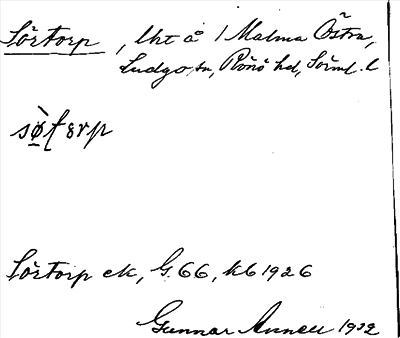 Sörtorp, lht å 1 Malma Östra,
Ludgo sn, Rönö hd, Söml. l
sø̀ʈɔrp
Sörtorp ek, G. 66, kb 1926
Gunnar Annell 1932